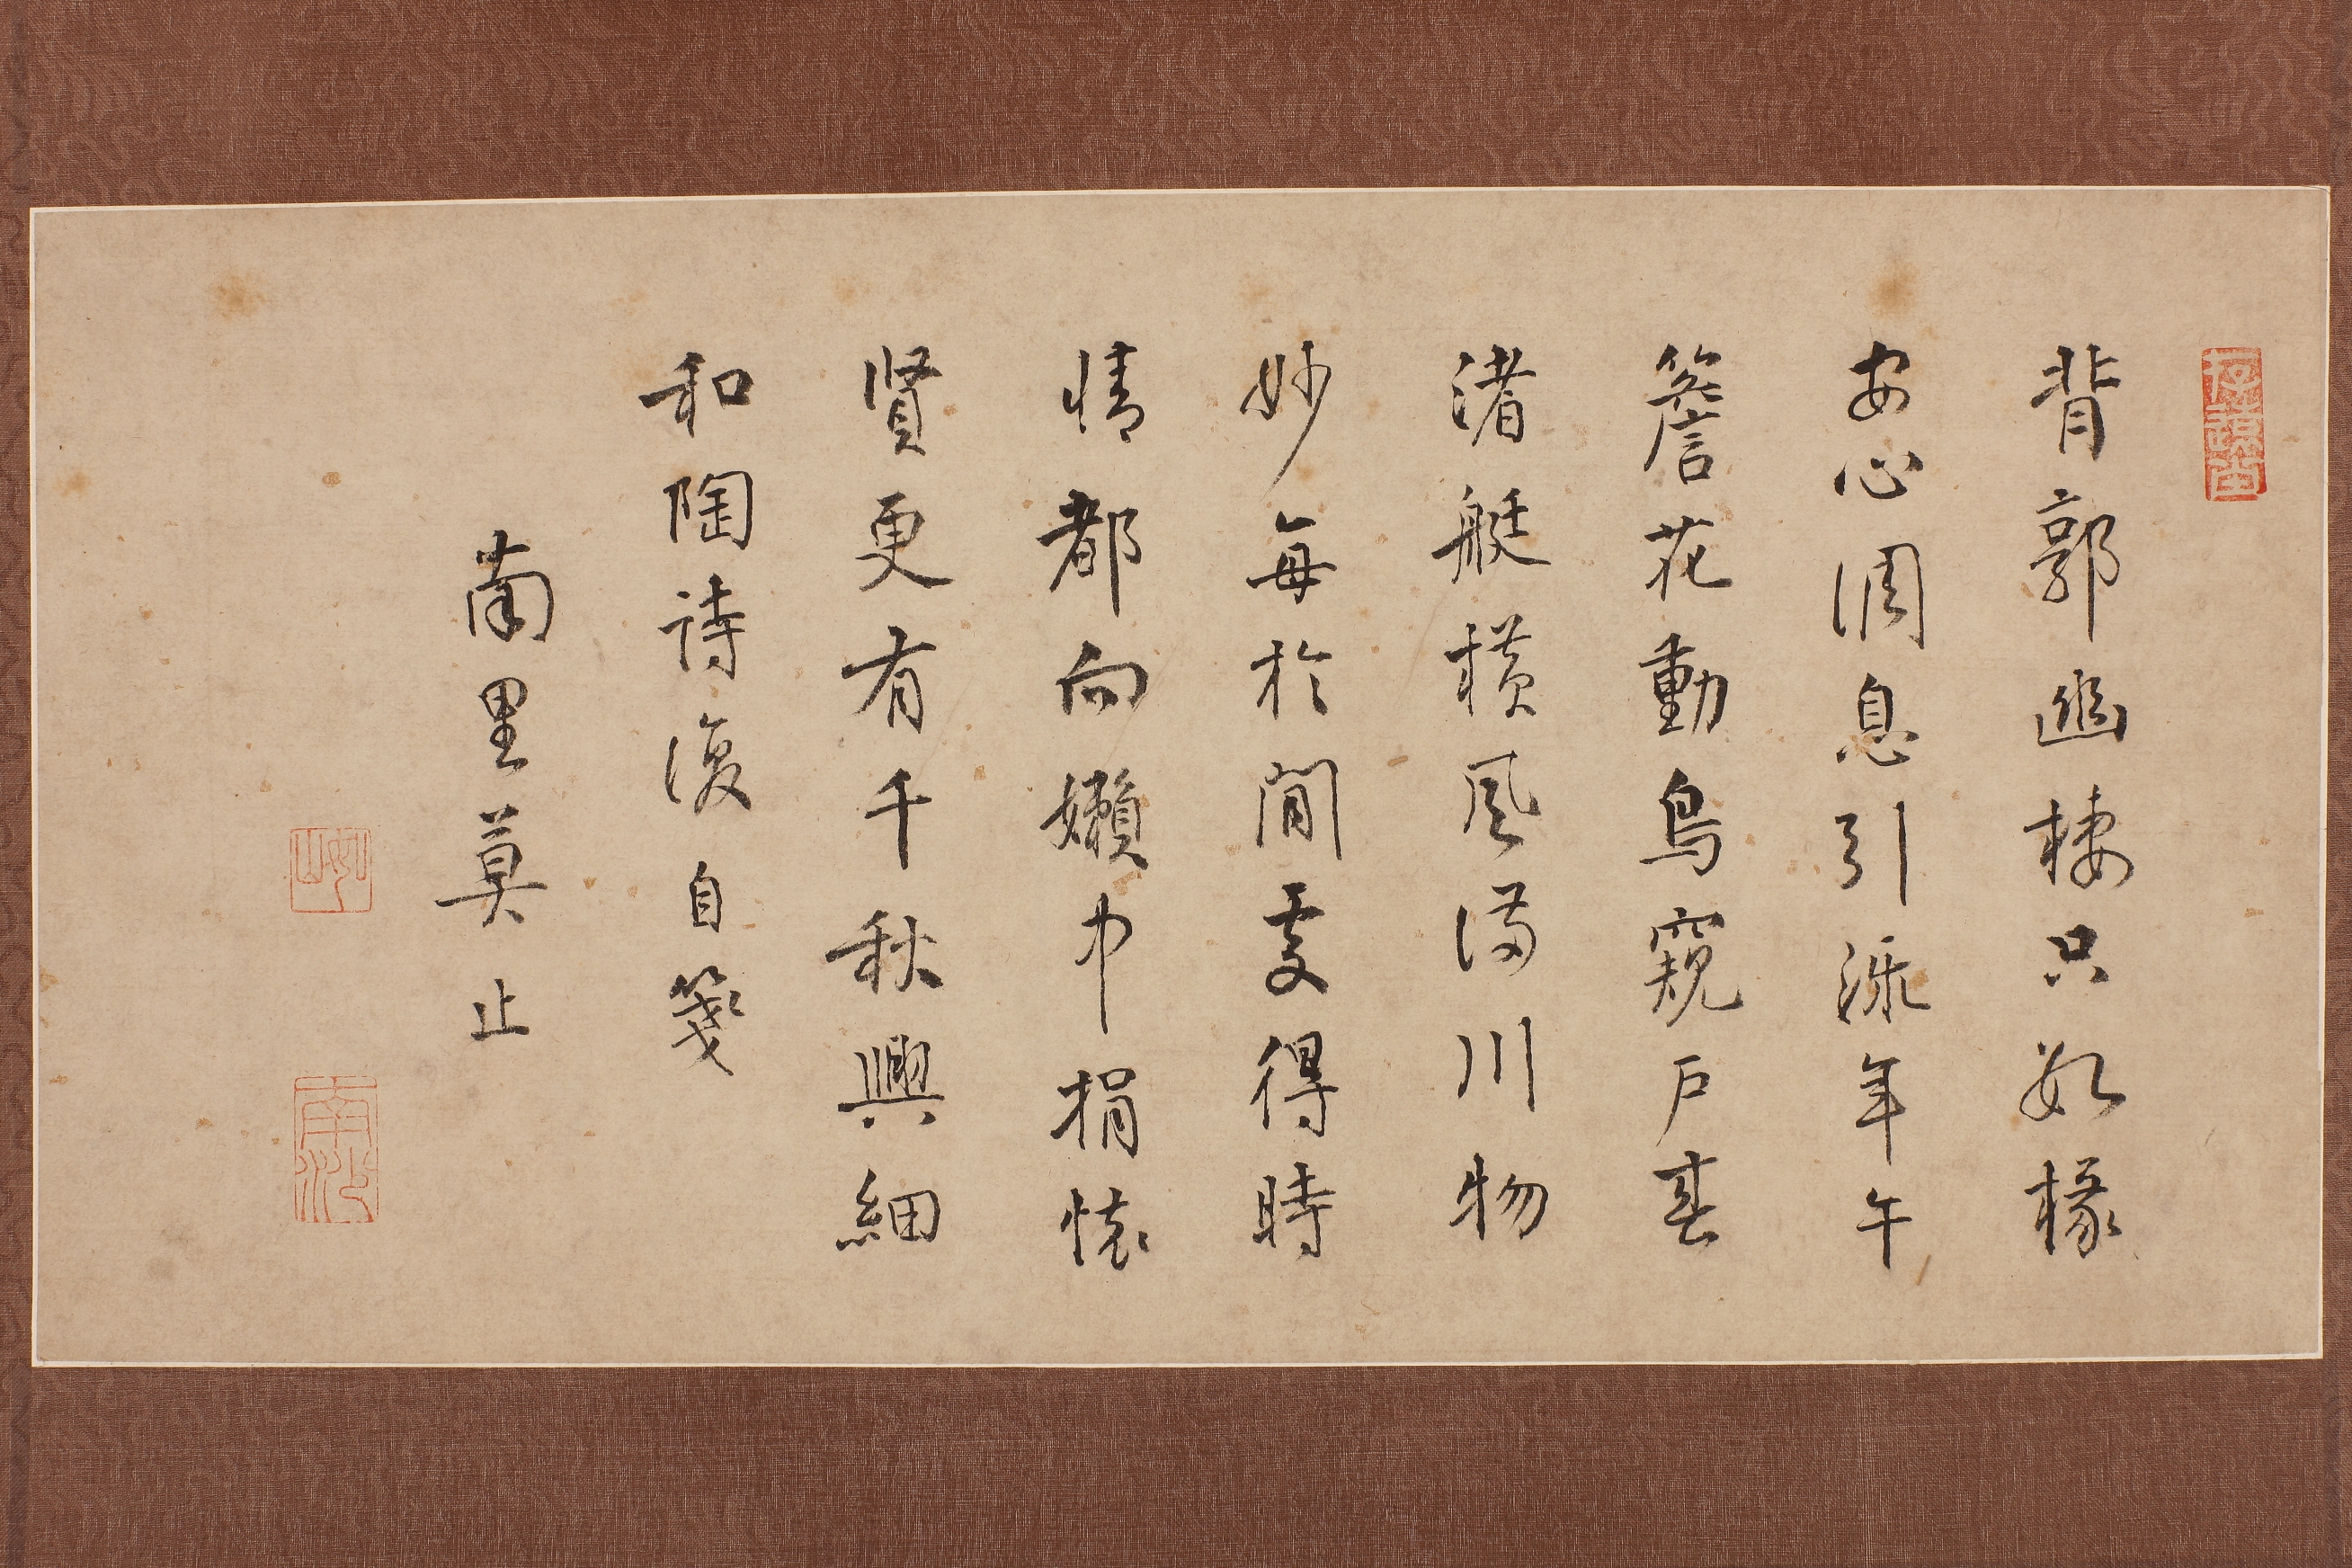 背郭幽棲只數椽
安心調息引流年午
簷花動鳥窺戶春
渚艇橫風滿川物
妙每於閒處得時
情都向嬾中捐懷
賢更有千秋興細
和陶詩復自箋
南里莫止